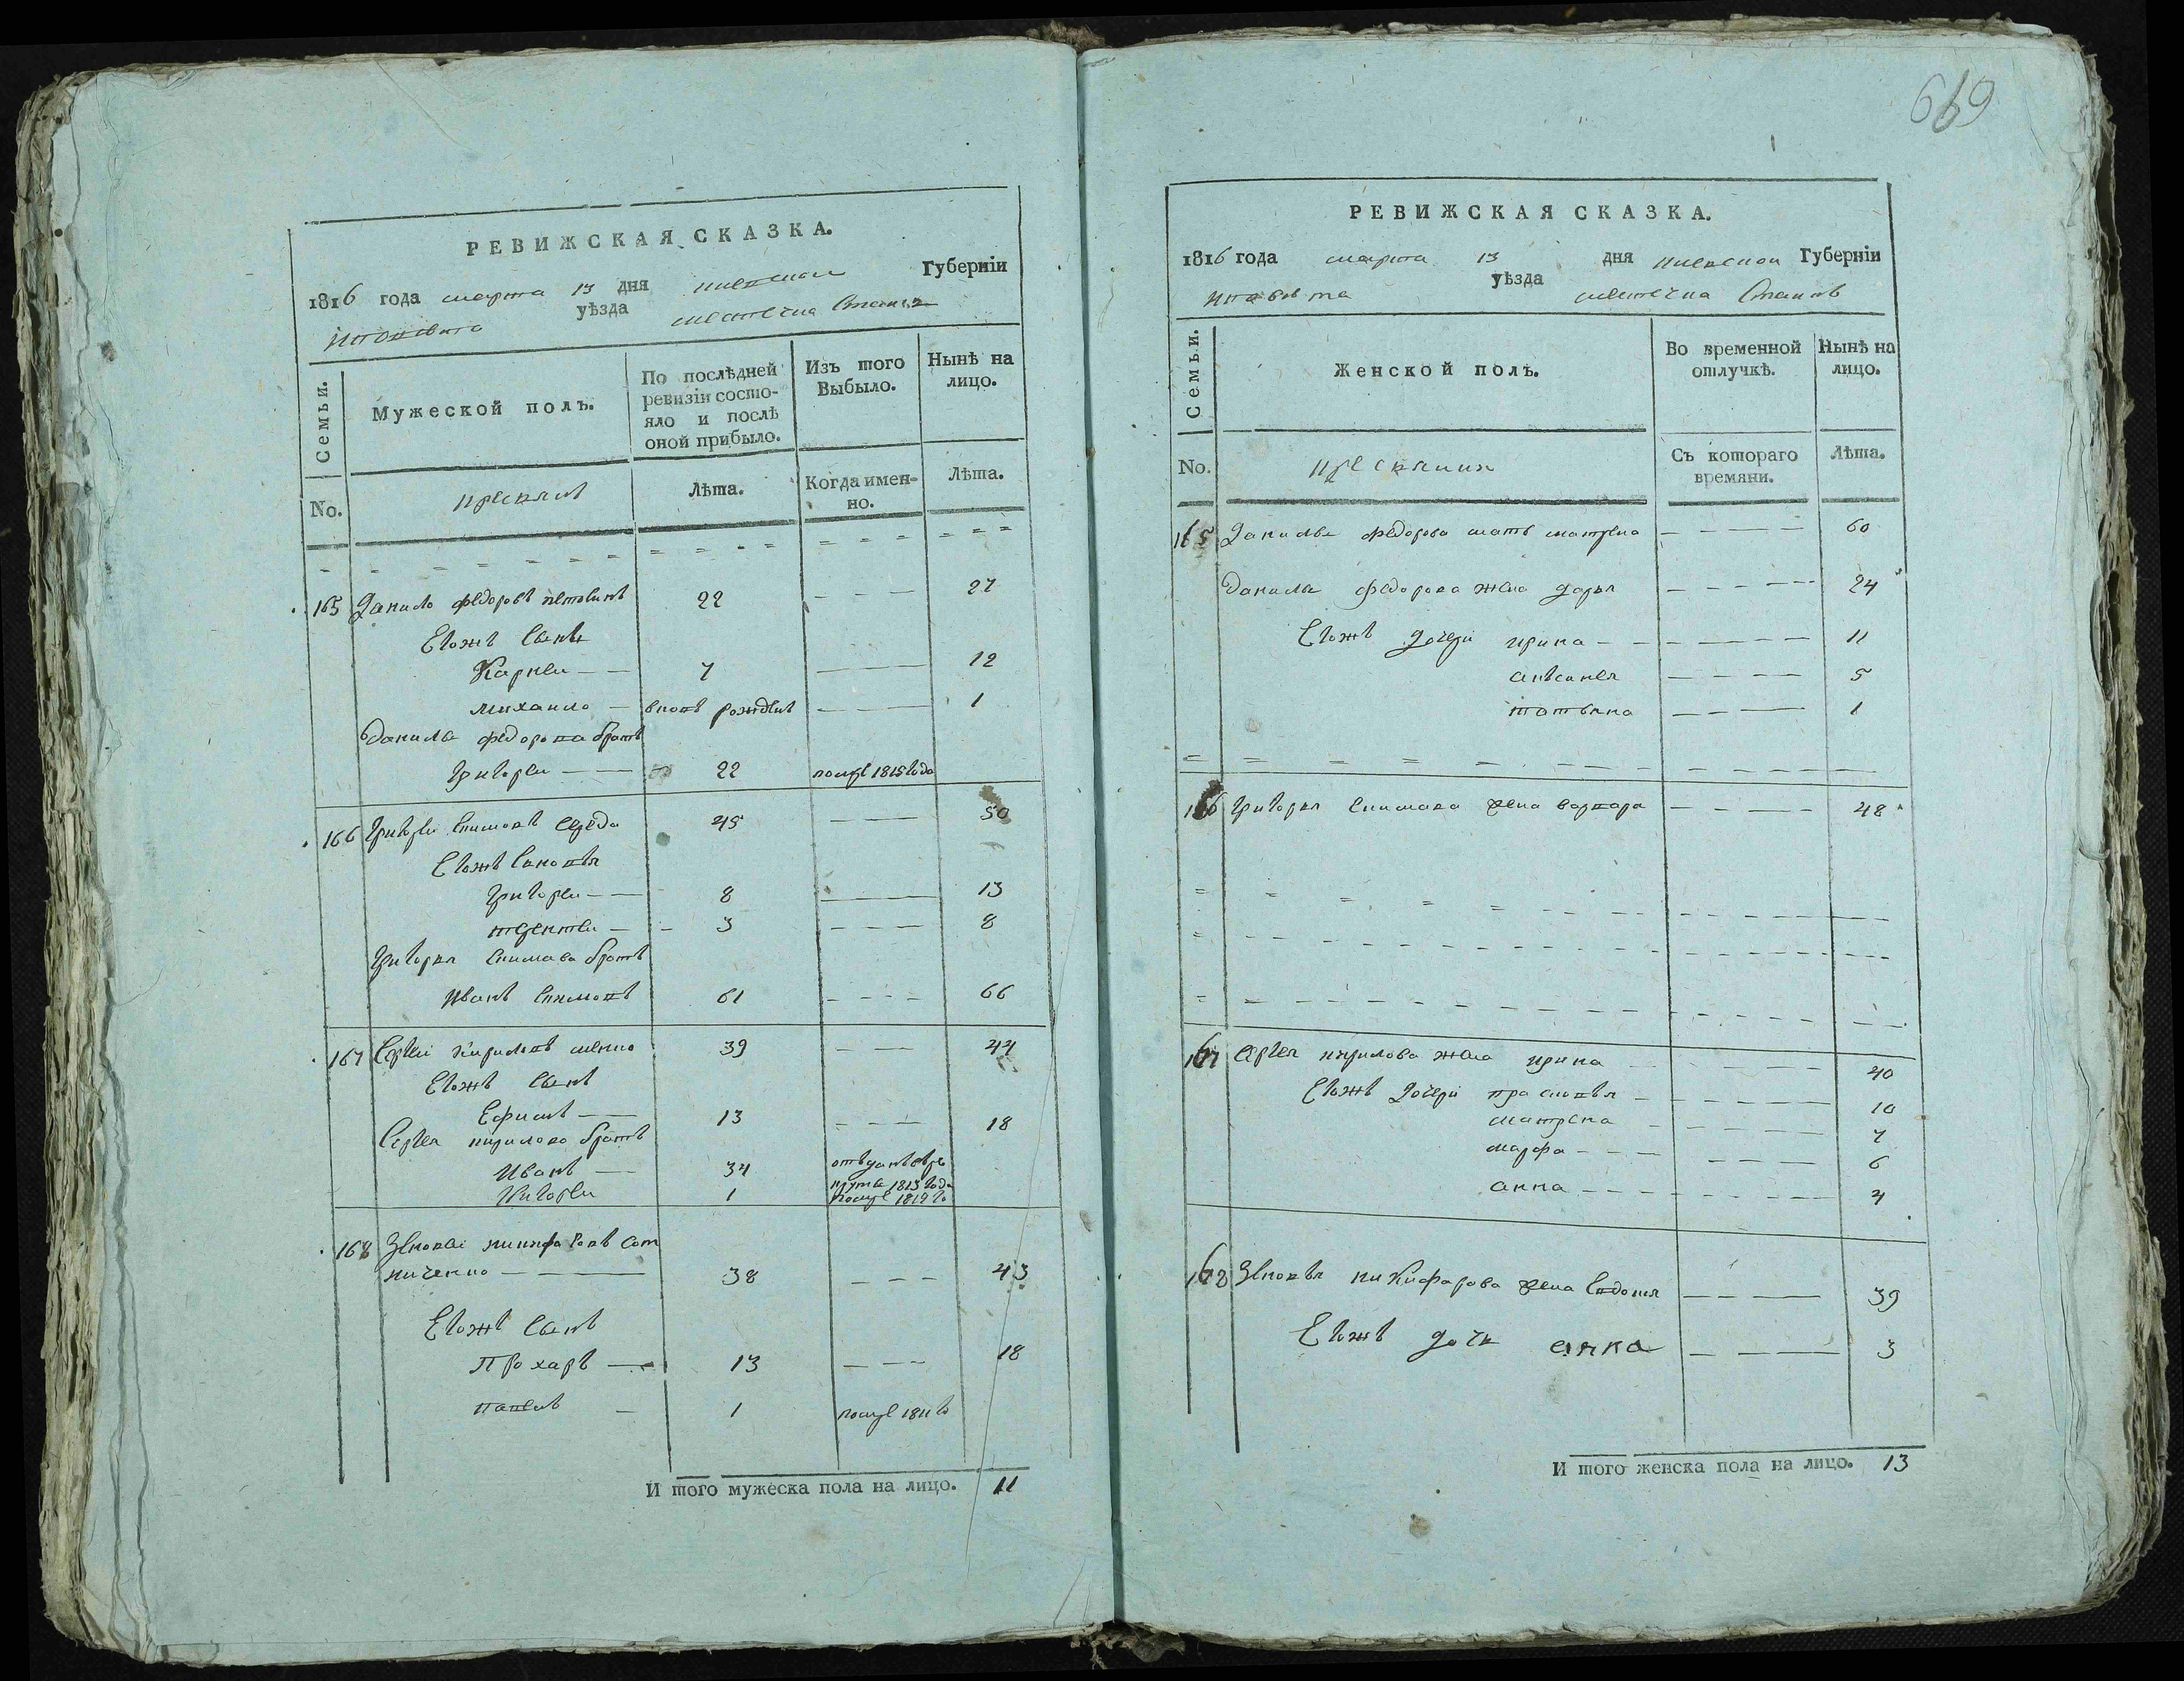 РЕВИЖСКАЯ СКАЗКА.
1816 года марта 13 дня Губерніи
уѣзда местечка
Семьи.
Мужеской полъ.
По послѣдней ревизіи состояло и послѣ оной прибыло.
Изъ того Выбыло.
Нынѣ на лицо.
No.
Лѣта.
Когда именно.
Лѣта.
165 Данило федоровъ 22 27
Егожъ сынъ
Карпеи 7 12
михаило вновь рожденъ 1
Данила федорова братъ
Григореи 22 помре 1815 года
166 Григореи Середа 45 50
Егожъ
Григореи 8 13
терентеи 3 8
Григорея братъ
Иванъ 61 66
167 Сергеи кириловъ 39 44
Егожъ сынъ
Ефимъ 13 18
Сергея кирилова братъ
Иванъ 34 отъданъ рекруты 1813 года
Григореи 1
168 Зеновеи никифоровъ сот
ниченко 38 43
Егожъ сынъ
Прохаръ 13 18
павелъ 1 помре 1811 го
И того мужеска пола на лицо. 11
669
РЕВИЖСКАЯ СКАЗКА.
1816 года марта 13 дня киевской Губерніи
повѣта уѣзда местечка
Семьи.
Женской полъ.
Во временной отлучкѣ.
Нынѣ на лицо.
No.
Съ котораго времяни.
Лѣта.
165 Данилы федорова мать матрена 60
Данилы федорова жена дарья 24
Егожъ дочери ирина 11
5
татьяна 1
166 Григорея жена варвара 48
167 Сергея кирилова жена ирина 40
Егожъ дочери прасковья 10
матрена 7
марфа 6
анна 4
168 Зеновея никифорова жена Евдокия 39
Егожъ дочь анна 3
И того женска пола на лицо. 13